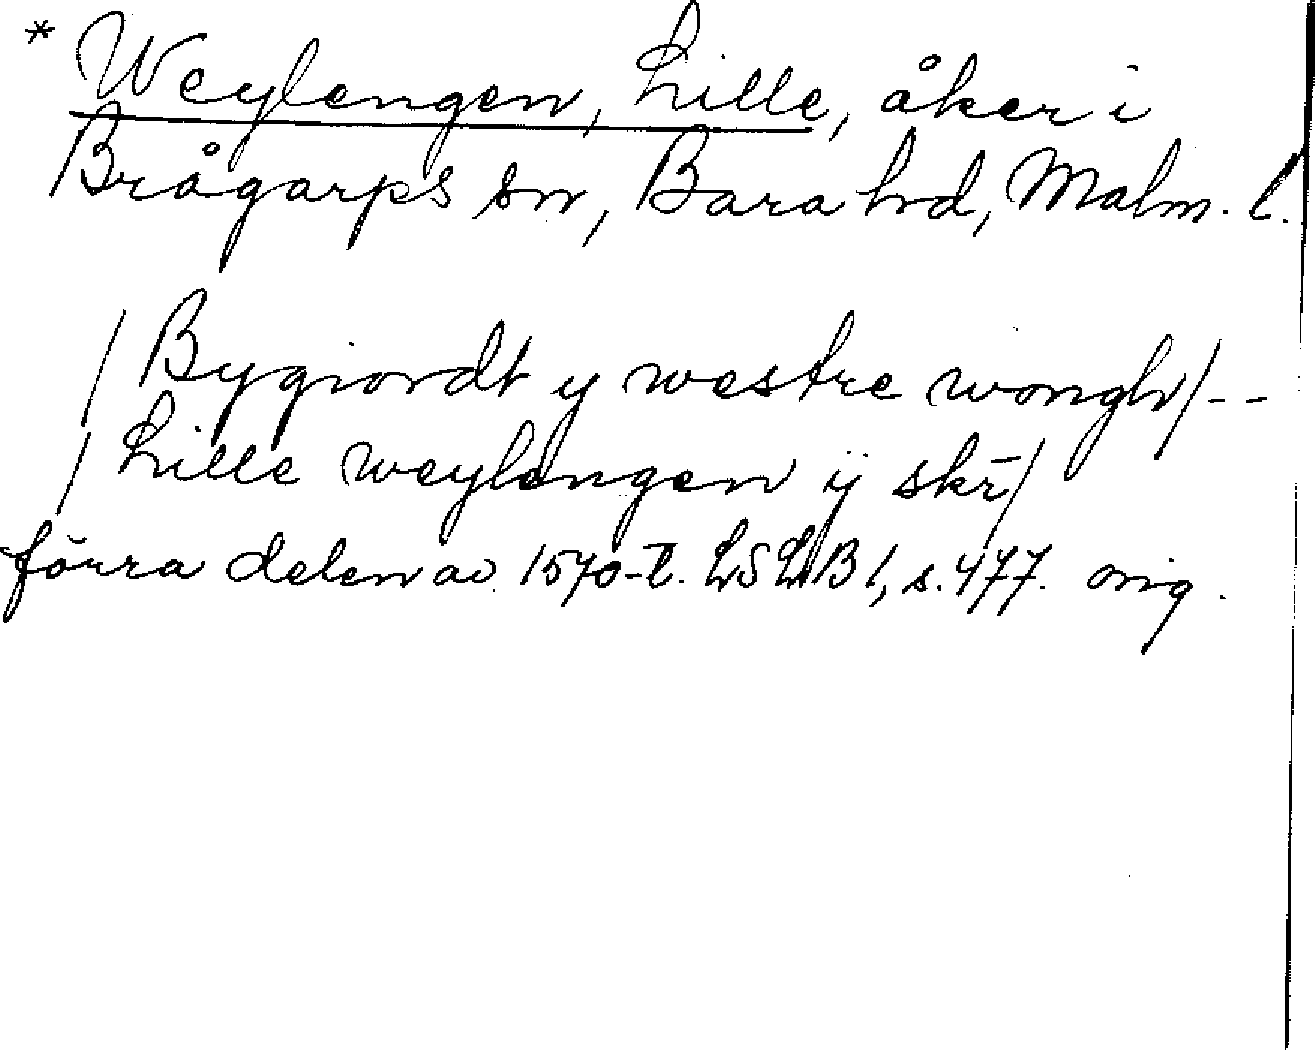 * Weylengen, Lille, åker i
Brågarps sn, Bara hd, Malm. l.
/ Bygiordt y westre wongh/--
/ Lille weylengen ij skr̄/
förra delen av 1570-t. LSLB 1, s. 477. orig.